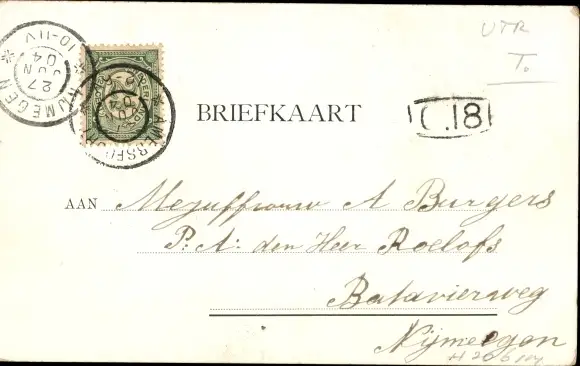 UTR
T.
NIJMEGEN
10-11V
27
JUN
04
AMERSFOORT
BRIEFKAART
C.18
AAN Mejuffrouw A Burgers
P: A: den Heer Roelofs
Batavierweg
Nijmegen